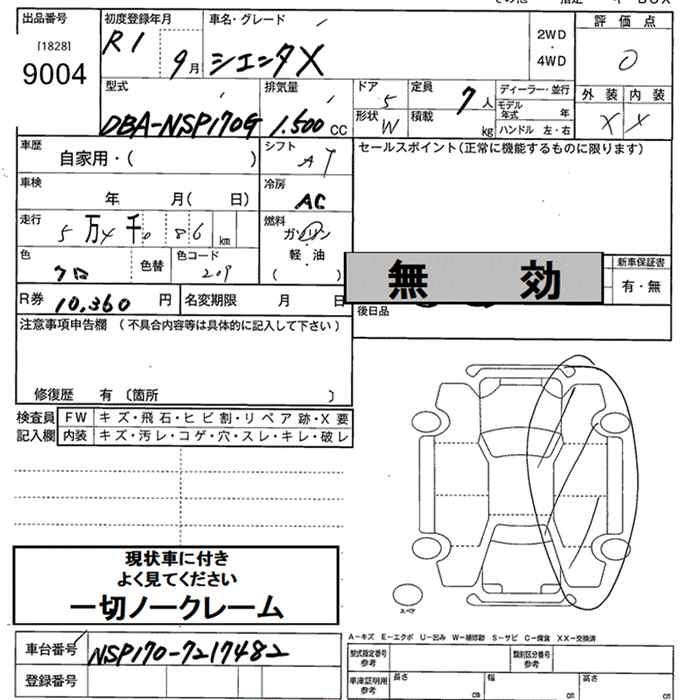 出品番号
[1828]
9004
初度登録年月
R1
9月
車名・グレード
シエンタX
2WD
・
4WD
評価点
0
外装 内装
X X
型式
DBA-NSP170G
排気量
1.500 CC
ドア
5
形状
W
定員
7人
積載
kg
ディーラー・並行
モデル年式 年
ハンドル 左・右
車歴
自家用・( )
シフト
AT
セールスポイント(正常に機能するものに限ります)
車検
年 月( 日)
冷房
AC
走行
5万4千086km
燃料
ガソリン
・
軽油
( )
色
クロ
色替
色コード
209
無効
新車保証書
有・無
R券 10,360 円
名変期限 月 日
後日品
注意事項申告欄 (不具合内容等は具体的に記入して下さい)
修復歴 有〔箇所 〕
検査員 FW キズ・飛石・ヒビ割・リペア跡・X要
記入欄 内装 キズ・汚レ・コゲ・穴・スレ・キレ・破レ
現状車に付き
よく見てください
一切ノークレーム
スペア
A-キズ E-エクボ U-凹み W-補修跡 S-サビ C-腐食 XX-交換済
車台番号 NSP170-7217482
登録番号
型式指定番号
参考
類別区分番号
参考
車庫証明用
参考
長さ cm
幅 cm
高さ cm